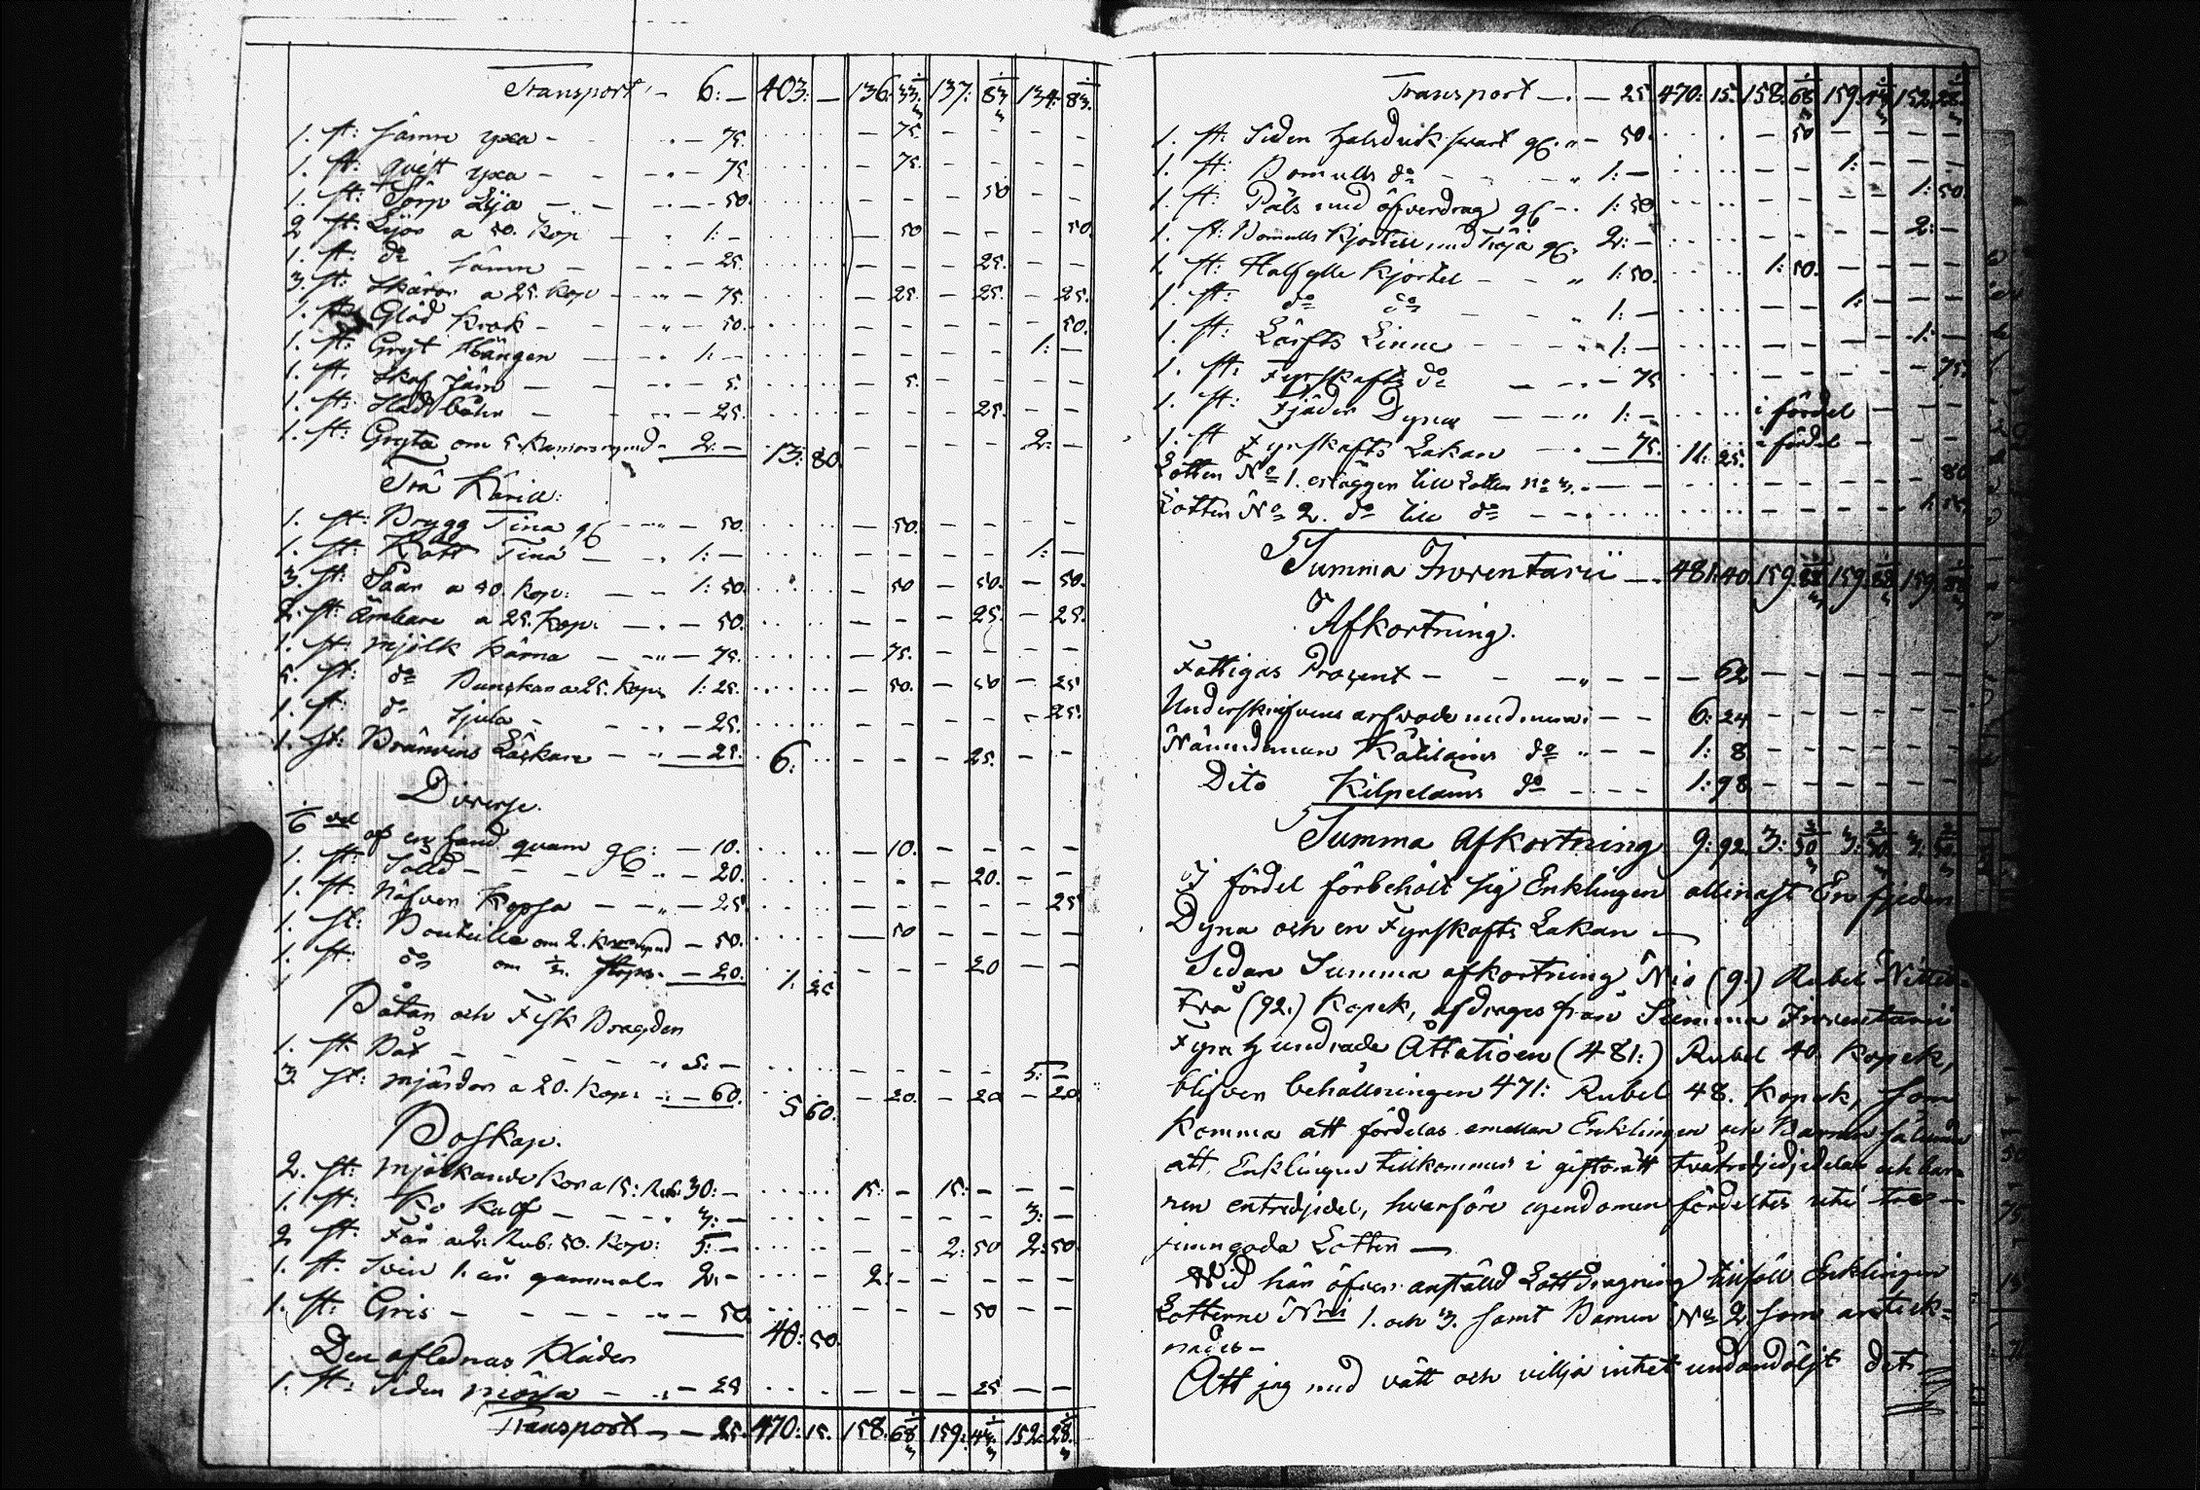 Transport — 6: — 403: — 136. 33 1/3 137: 83 1/3 134: 83 1/3
1. st: yxa — 75. — 75.
1. st: qvist yxa — 75 — 75.
1. st: Lija — 50. — 50
2 st: Lijor a 50. Kop — 1: — 50 — 50.
1. st: do — 25. — 25.
3. st: Skäror a 25. Kop — 75. — 25. — 25. — 25.
1. st: Glöd Krok — 50. — 50.
1. st: Gryt — 1: — 1: —
1. st: Skaf Järn — 5. — 5.
1. st: — 25. — 25.
1. st: Gryta om 5. Kannors rymd — 2: — 13: 80. — 2: —
Trä Käril:
1. st: Brygg Tina gl — 50. — 50.
1. st: Tina — 1: — 1: —
3. st: Saar a 50. Kop: — 1: 50. — 50 — 50. — 50.
2. st: Ämbare a 25. Kop. — 50. — 25. — 25.
1. st: Mjölk Kärna — 75. — 75.
5. st: do Bunckar a 25. Kop. 1: 25. — 50. — 50 — 25
1. st: do — 25. — 25.
1. st: Bränvins — 25: 6: — 25.
Diverse.
1/6 del af en hand quarn gl: — 10. — 10.
1. st: Såld — gl — 20. — 20.
1. st: Näfver Kopsa — 25 — 25
1. st: Bouteille om 2. — 50. — 50
1. st: do om 1/2. Stop. — 20. 1: 25 — 20
Båtan och Fisk Bragden
1. st. Båt — 5. — 5: —
3. st: Mjärdor a 20. Kop. — 60. 5 60. — 20. — 20 — 20
Boskap.
2. st: Mjölkande Kor a 15: Rub: 30: — 15: — 15: —
1. st: Ko Kalf — 3: — 3: —
2 st: Får a 2: Rub: 50. Kop: 5: — 2: 50 2: 50.
1. st. Svin 1. år gammal — 2: — 2: —
1. st: Gris — 50. 40: 50. — 50
Den aflednas Kläder
1. st: Siden mössa — 25 — 25
Transport — 25. 470: 15. 158. 68 1/3 159. 43 1/3 152: 28 1/3
Transport — 25 470: 15. 158. 68 1/3 159. 152. 28 1/3
1. st: Siden halsduk svart gl. — 50. — 50
1. st: Bomulls do — 1: — 1: —
1. st: Päls med öfverdrag gl — 1: 50 — 1: 50.
1. st: Bomulls Kjortell med Tröja gl. 2: — 2: —
1. st: Halfylle Kjortel — 1: 50. — 1: 50.
1. st: do do — 1: — 1: —
1. st: Lärfts Linne — 1: — 1: —
1. st: Fyrskafts do — 75 — 75.
1. st: Fjäder Dyna — 1: — i fördel
1. st Fyrskafts Lakan — 75. 11: 25. i fördel
Lotten No 1. erlägger till Lotten no 3. — 80
Lotten No 2. do till do — 1. 55.
Summa Inventarii — 481. 40. 159. 159. 159.
Afkortning.
Fattigas Procent — 62
Underskrifvens arfvode med mera: — 6: 24
Nämndeman do — 1: 8
Dito Kilpeläins do — 1: 98.
Summa Afkortning 9: 92. 3: 3: 3:
I fördel förbehölt sig Enklingen allenast En fjeder
Dyna och en Fyrskafts Lakan —
Sedan Summa afkortning Nio (9.) Rubel Nittio-
Två (92.) Kopek, afdrages från Summa Inventarii
Fyra hundrade Åttatioen (481:) Rubel 40. Kopek,
blifver behållningen 471: Rubel 48. Kopek, som
komma att fördelas emellan Enklingen och Barnen sålunda
att, Enklingen tillkommer i giftorätt tvåtredjedelar och bar-
nen entredjedel, hvarföre egendomen fördeltes uti tre —
jemngoda Lotter —
Wid här öfver anstäld Lottdragning tillföll Enklingen
Lotterne Nris 1. och 3. samt Barnen No 2. som anteck-
nades —
Att jag med vett och vilja intet undandöljt det